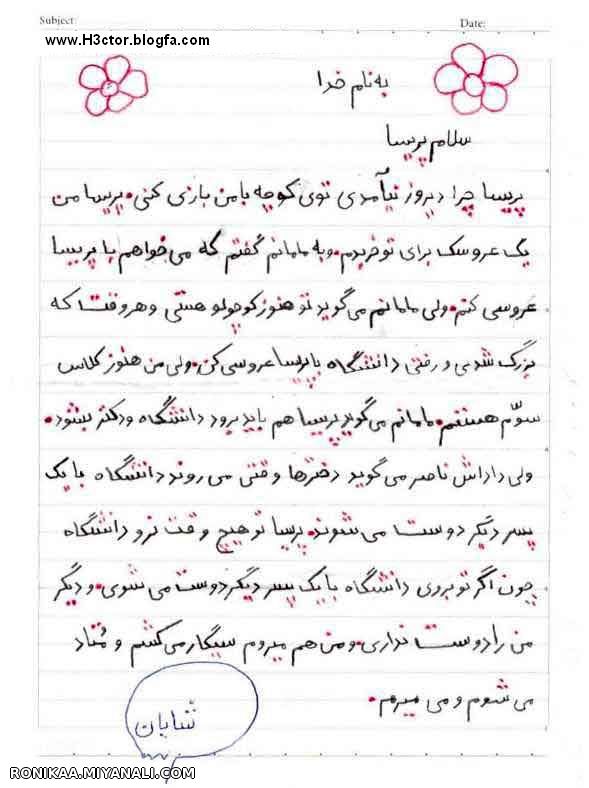 Subject:
Date:
www.H3ctor.blogfa.com
به نام خدا
سلام پریسا
پریسا چرا دیروز نیآمدی توی کوچه با من بازی کنی. پریسا من
یک عروسک برای تو خریدم. و به مامانم گفتم که می خواهم با پریسا
عروسی کنم. ولی مامانم می گوید تو هنوز کوچولو هستی و هر وقت که
بزرگ شدی و رفتی دانشگاه با پریسا عروسی کن. ولی من هنوز کلاس
سوّم هستم. مامانم می گوید پریسا هم باید برود دانشگاه و دکتر بشود.
ولی داداش ناصر می گوید دخترها وقتی می روند دانشگاه با یک
پسر دیگر دوست می شوند. پریسا تو هیچ وقت نرو دانشگاه
چون اگر تو بروی دانشگاه با یک پسر دیگر دوست می شوی. و دیگر
من را دوست نداری. و من هم میروم سیگار می کشم و مُتاد
می شوم و می میرم.
شایان
RONIKAA.MIYANALI.COM